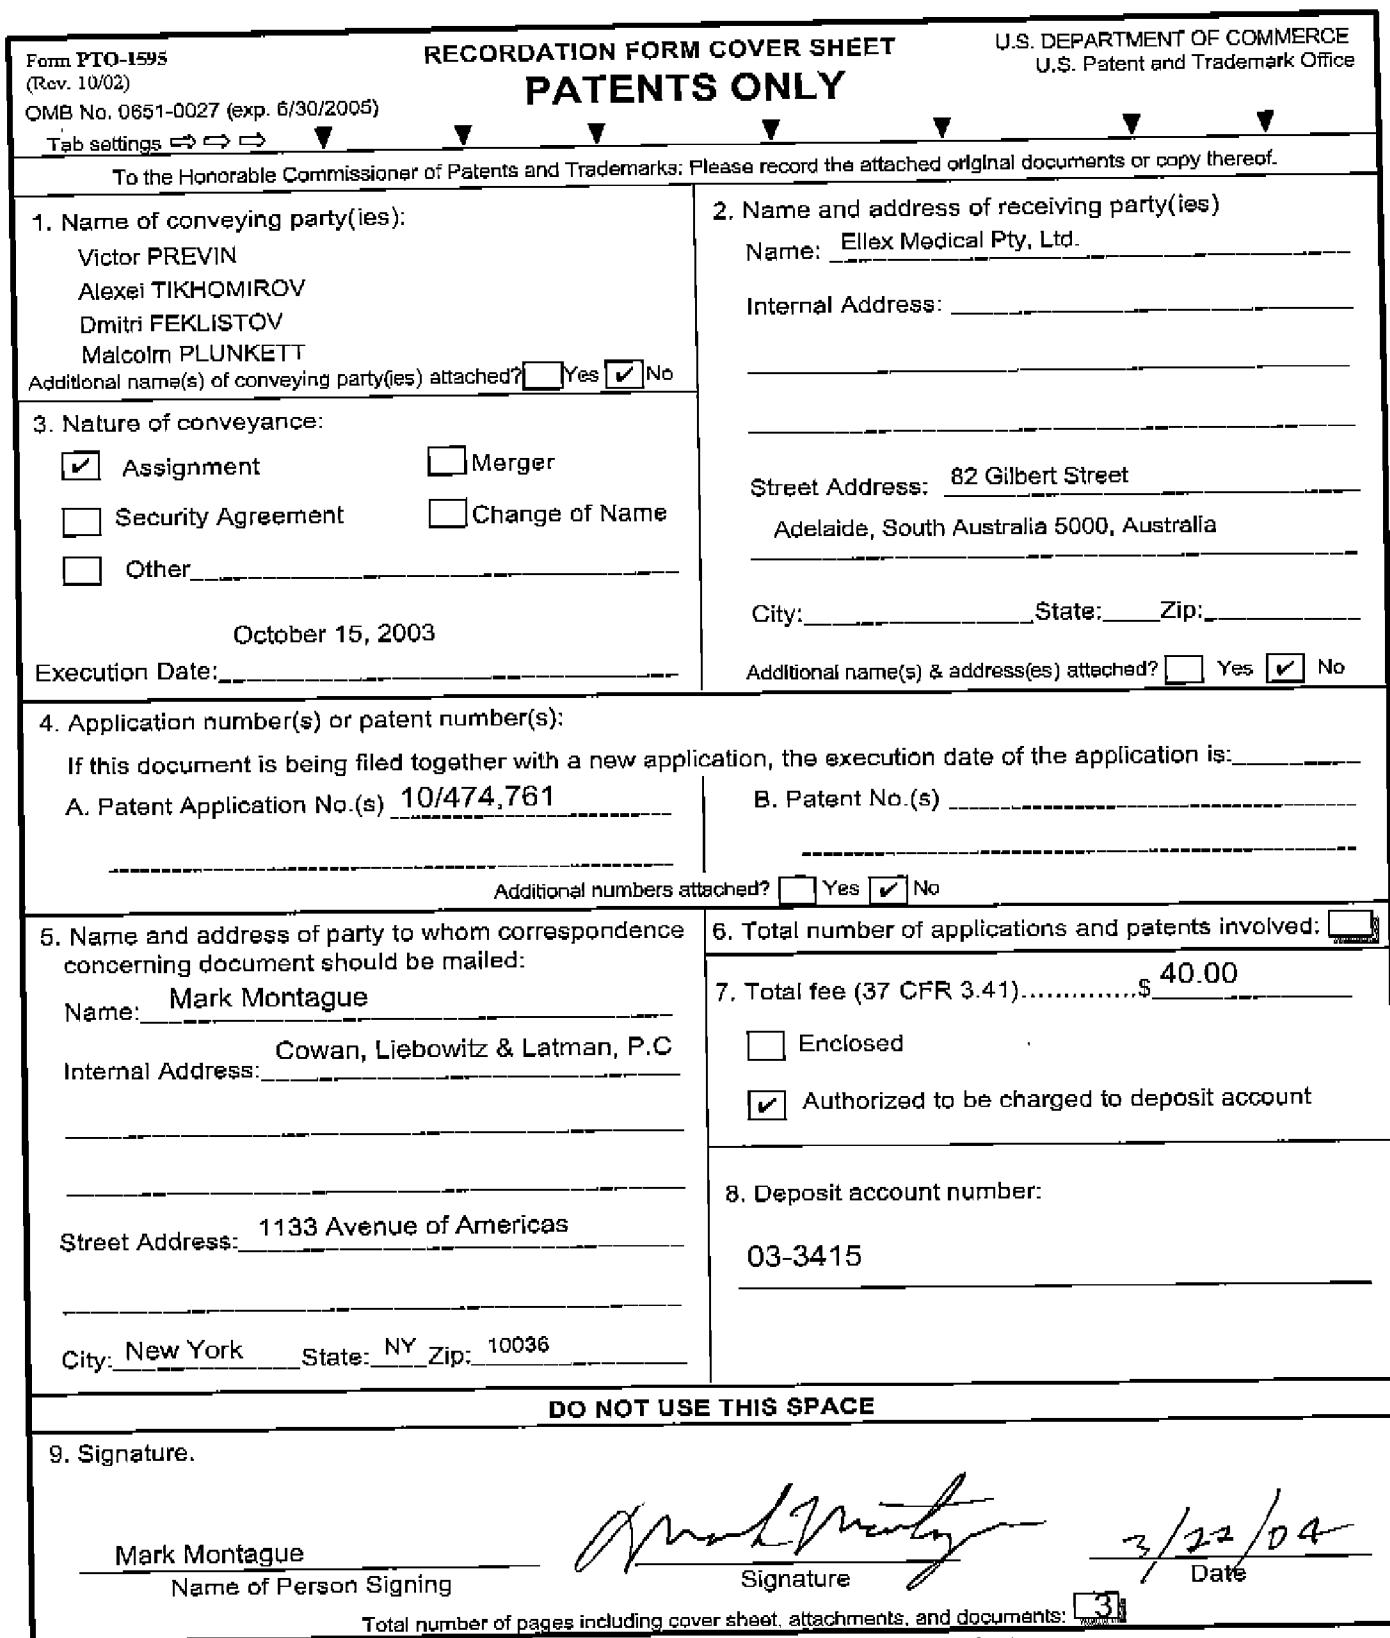 Form PTO-1595
(Rev. 10/02)
OMB No. 0651-0027 (exp. 6/30/2005)
Tab settings ⇨ ⇨ ⇨ ▼ ▼ ▼ ▼ ▼ ▼ ▼
RECORDATION FORM COVER SHEET
PATENTS ONLY
U.S. DEPARTMENT OF COMMERCE
U.S. Patent and Trademark Office
To the Honorable Commissioner of Patents and Trademarks: Please record the attached original documents or copy thereof.
1. Name of conveying party(ies):
Victor PREVIN
Alexei TIKHOMIROV
Dmitri FEKLISTOV
Malcolm PLUNKETT
Additional name(s) of conveying party(ies) attached? Yes ✔ No
2. Name and address of receiving party(ies)
Name: Ellex Medical Pty, Ltd.
Internal Address:
Street Address: 82 Gilbert Street
Adelaide, South Australia 5000, Australia
City: State: Zip:
Additional name(s) & address(es) attached? Yes ✔ No
3. Nature of conveyance:
✔ Assignment Merger
Security Agreement Change of Name
Other
October 15, 2003
Execution Date:
4. Application number(s) or patent number(s):
If this document is being filed together with a new application, the execution date of the application is:
A. Patent Application No.(s) 10/474,761
B. Patent No.(s)
Additional numbers attached? Yes ✔ No
5. Name and address of party to whom correspondence
concerning document should be mailed:
Name: Mark Montague
Internal Address: Cowan, Liebowitz & Latman, P.C
Street Address: 1133 Avenue of Americas
City: New York State: NY Zip: 10036
6. Total number of applications and patents involved:
7. Total fee (37 CFR 3.41)..............$ 40.00
Enclosed
✔ Authorized to be charged to deposit account
8. Deposit account number:
03-3415
DO NOT USE THIS SPACE
9. Signature.
Mark Montague
Name of Person Signing
Mark Montague
Signature
3/22/04
Date
Total number of pages including cover sheet, attachments, and documents: 3